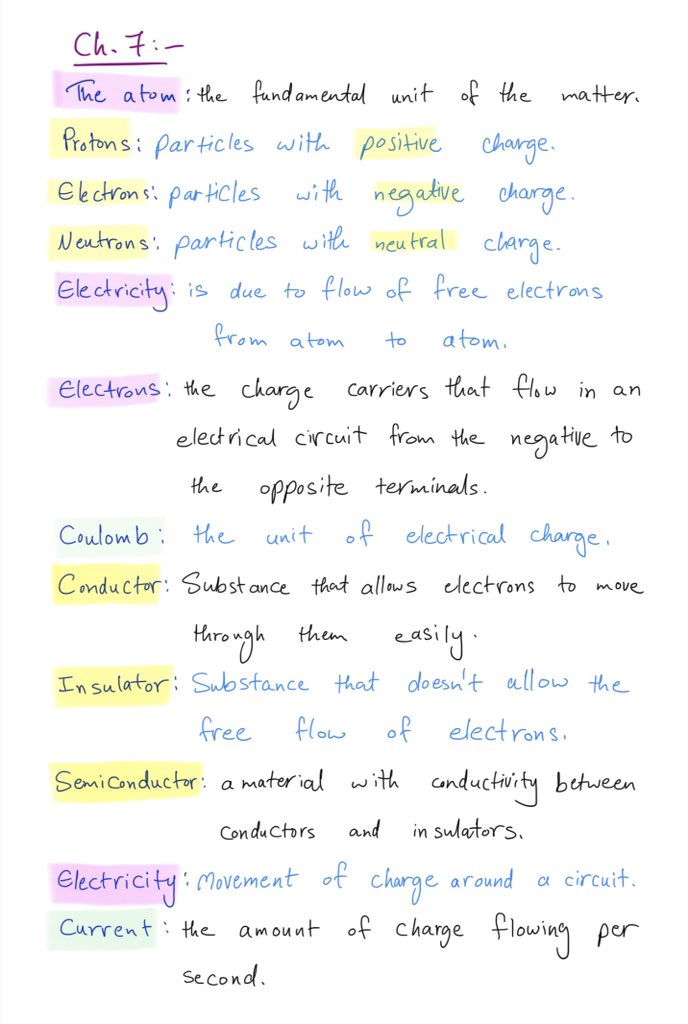 Ch. 7:-
The atom: the fundamental unit of the matter.
Protons: particles with positive charge.
Electrons: particles with negative charge.
Neutrons: particles with neutral charge.
Electricity: is due to flow of free electrons
from atom to atom.
Electrons: the charge carriers that flow in an
electrical circuit from the negative to
the opposite terminals.
Coulomb: the unit of electrical charge.
Conductor: Substance that allows electrons to move
through them easily.
Insulator: Substance that doesn't allow the
free flow of electrons.
Semiconductor: a material with conductivity between
conductors and insulators.
Electricity: Movement of charge around a circuit.
Current: the amount of charge flowing per
second.